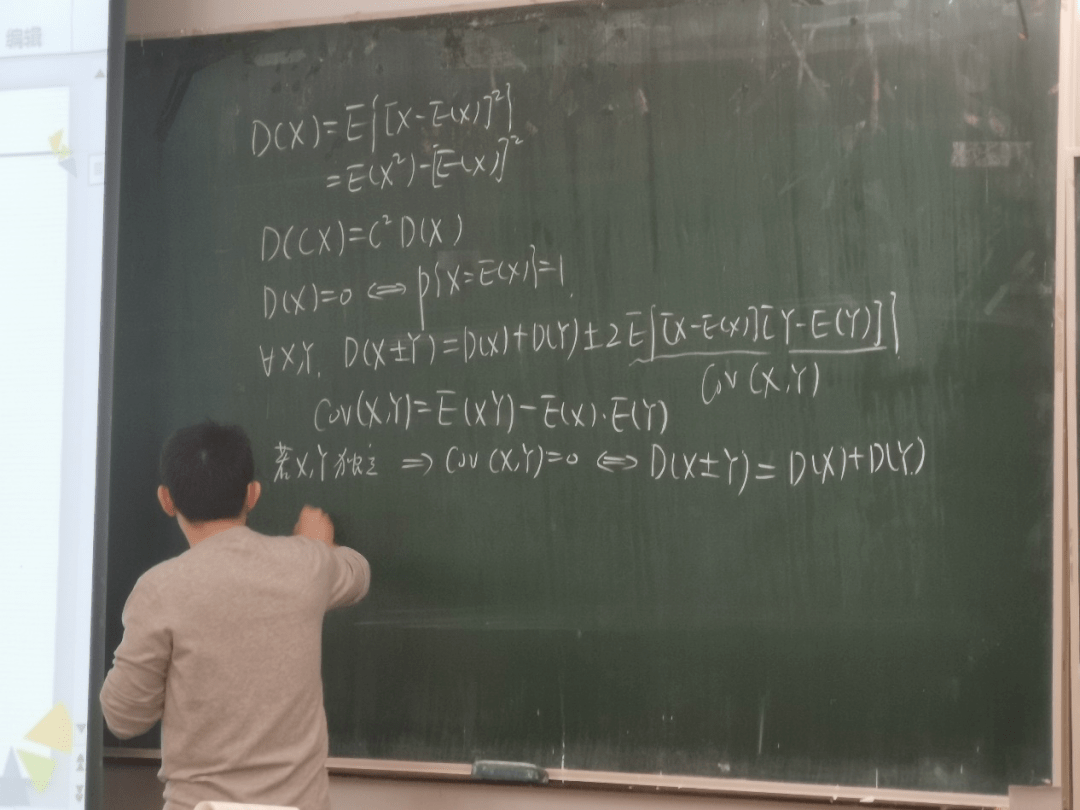 编辑
D(X)=E{[X-E(X)]²}
=E(X²)-[E(X)]²
D(CX)=C²D(X)
D(X)=0 ⇔ P{X=E(X)}=1
∀X,Y. D(X±Y)=D(X)+D(Y)±2E{[X-E(X)][Y-E(Y)]}
Cov(X,Y)
Cov(X,Y)=E(XY)-E(X)·E(Y)
若X,Y独立 ⇒ Cov(X,Y)=0 ⇔ D(X±Y)=D(X)+D(Y)